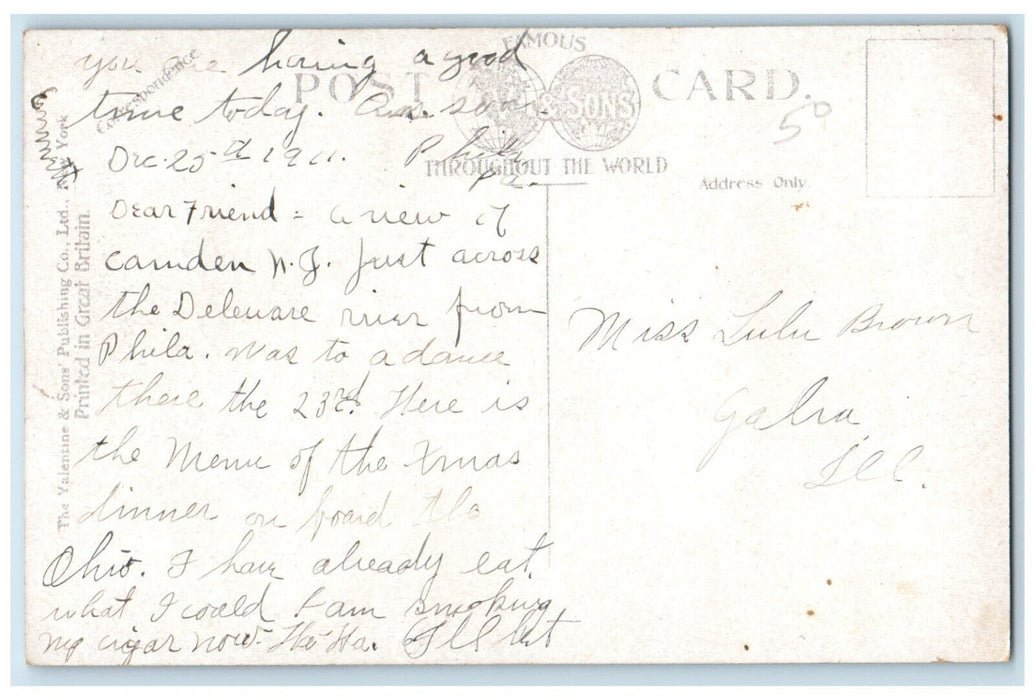 you are having a good
time today. Ans. soon.
Emmet
Dec. 25th 1911. Phila
Pa.
Dear Friend = a view of
Camden N.J. just across
the Deleware river from
Phila. was to a dance
there the 23rd. Here is
the Menu of the Xmas
dinner on board the
Ohio. I have already eat
what I could I am smoking
my cigar now. Ha Ha. I'll bet
Correspondence
The Valentine & Sons' Publishing Co., Ltd., New York
Printed in Great Britain.
FAMOUS
POST CARD.
& SONS
THROUGHOUT THE WORLD
Address Only.
50
Miss Lulu Brown
Galva
Ill.